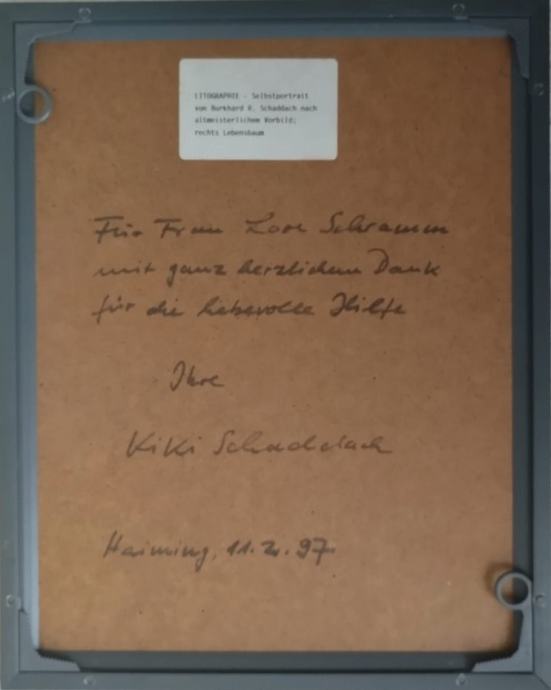 LITOGRAPHIE - Selbstportrait
von Burkhard R. Schaddach nach
altmeisterlichem Vorbild;
rechts Lebensbaum
Für Frau Lore Schramm
mit ganz herzlichem Dank
für die liebevolle Hilfe
Ihre
Kiki Schaddach
Haiming, 11.2.97.